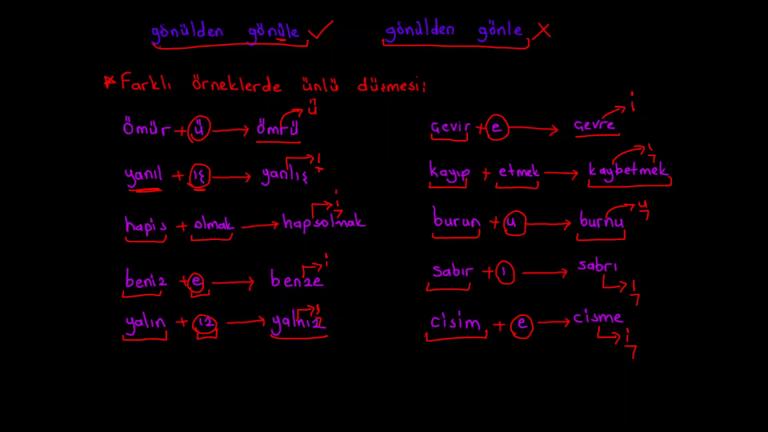 gönülden gönüle ✓ gönülden gönle ✗
* Farklı örneklerde ünlü düşmesi:
ömür + ü → ömrü ü
yanıl + ış → yanlış ı
hapis + olmak → hapsolmak i
beniz + e → benze i
yalın + ız → yalnız ı
çevir + e → çevre i
kayıp + etmek → kaybetmek ı
burun + u → burnu u
sabır + ı → sabrı ı
cisim + e → cisme i